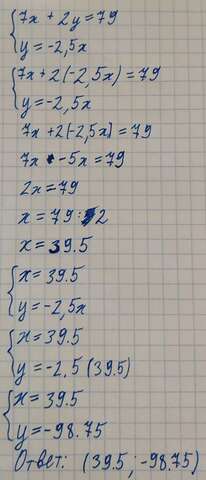 7x + 2y = 79
y = -2,5x
7x + 2(-2,5x) = 79
y = -2,5x
7x + 2(-2,5x) = 79
7x - 5x = 79
2x = 79
x = 79 : 2
x = 39.5
x = 39.5
y = -2,5x
x = 39.5
y = -2,5 (39.5)
x = 39.5
y = -98.75
Ответ: (39.5; -98.75)